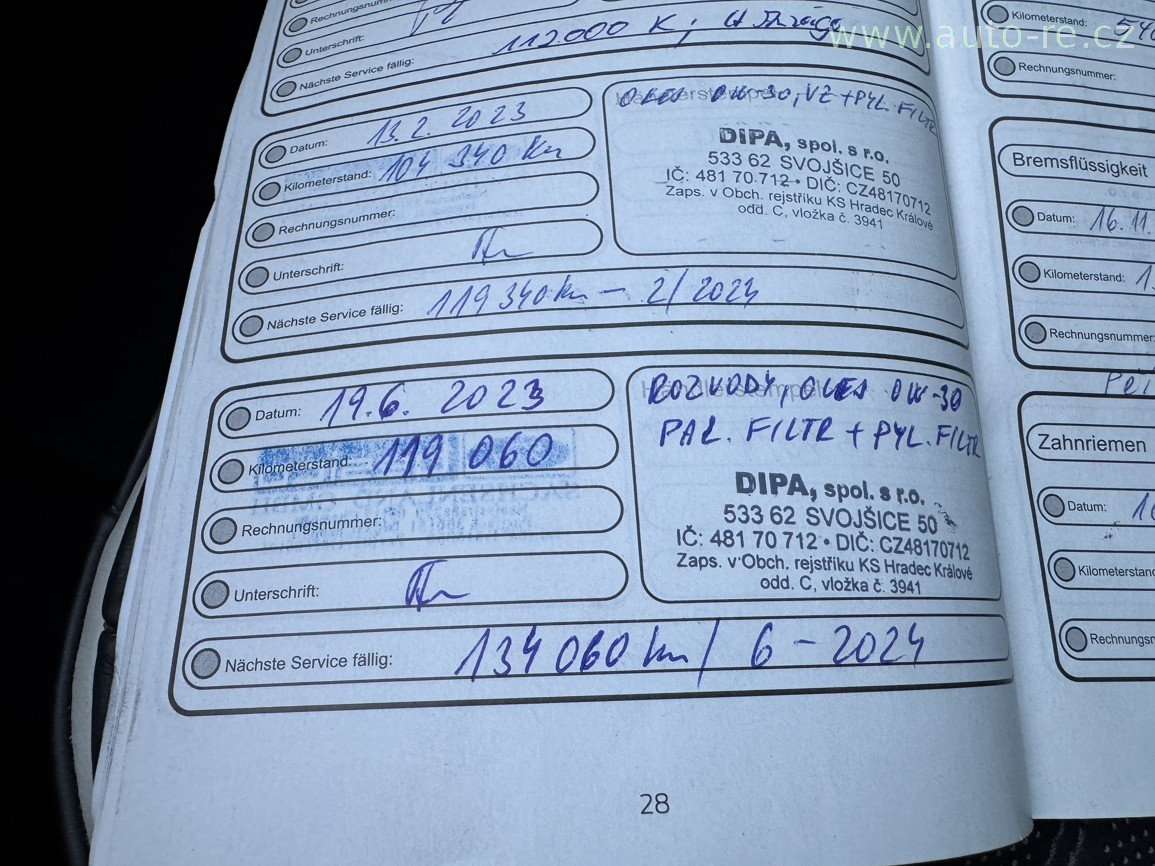 Rechnungsnummer:
Unterschrift:
Nächste Service fällig: 112000 K;
www.auto-re.cz
Datum: 13. 2. 2023
Kilometerstand: 104 340 Km
Rechnungsnummer:
Unterschrift:
Nächste Service fällig: 119 340 km – 2/2024
OLEJ 0W-30, VZ + PYL. FILTR
DIPA, spol. s r.o.
533 62 SVOJŠICE 50
IČ: 481 70 712 • DIČ: CZ48170712
Zaps. v Obch. rejstříku KS Hradec Králové
odd. C, vložka č. 3941
Datum: 19.6. 2023
Kilometerstand: 119 060
Rechnungsnummer:
Unterschrift:
Nächste Service fällig: 134 060 km / 6 – 2024
Händlerstempel
ROZVODY, OLEJ 0W-30
PAL. FILTR + PYL. FILTR
DIPA, spol. s r.o.
533 62 SVOJŠICE 50
IČ: 481 70 712 • DIČ: CZ48170712
Zaps. v Obch. rejstříku KS Hradec Králové
odd. C, vložka č. 3941
28
Kilometerstand: 540
Rechnungsnummer:
Bremsflüssigkeit
Datum: 16.11.
Kilometerstand:
Rechnungsnummer:
Zahnriemen
Datum:
Kilometerstand
Rechnungsn